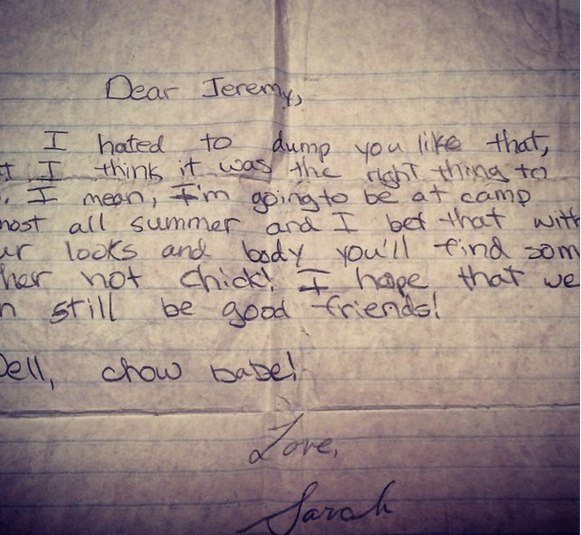 Dear Jeremy,
I hated to dump you like that,
t I think it was the right thing to
. I mean, I'm going to be at camp
most all summer and I bet that with
ur looks and body you'll find som
her hot chick! I hope that we
n still be good friends!
Well, chow babe!
Love,
Sarah